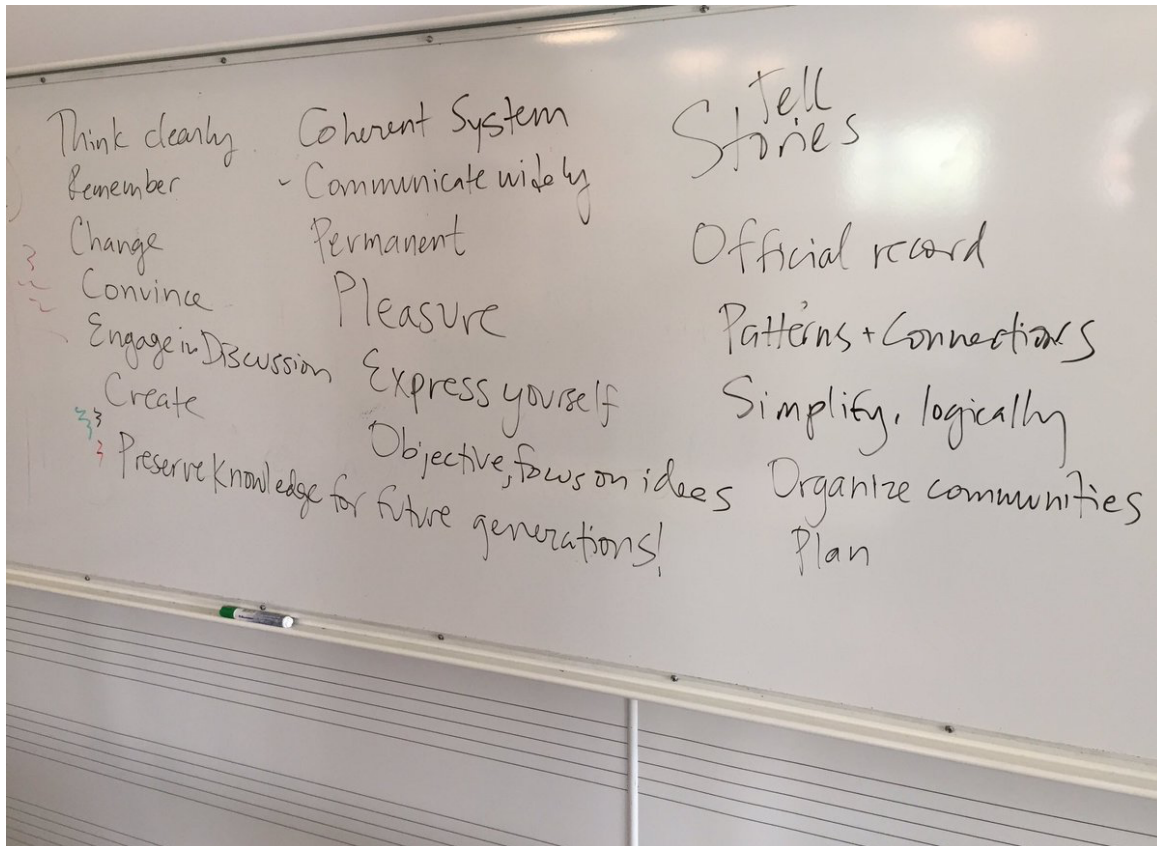 Think clearly
Remember
Change
Convince
Engage in Discussion
Create
Preserve Knowledge for future generations!
Coherent System
- Communicate widely
Permanent
Pleasure
Express yourself
Objective, focus on ideas
Tell
Stories
Official record
Patterns + Connections
Simplify, logically
Organize communities
Plan